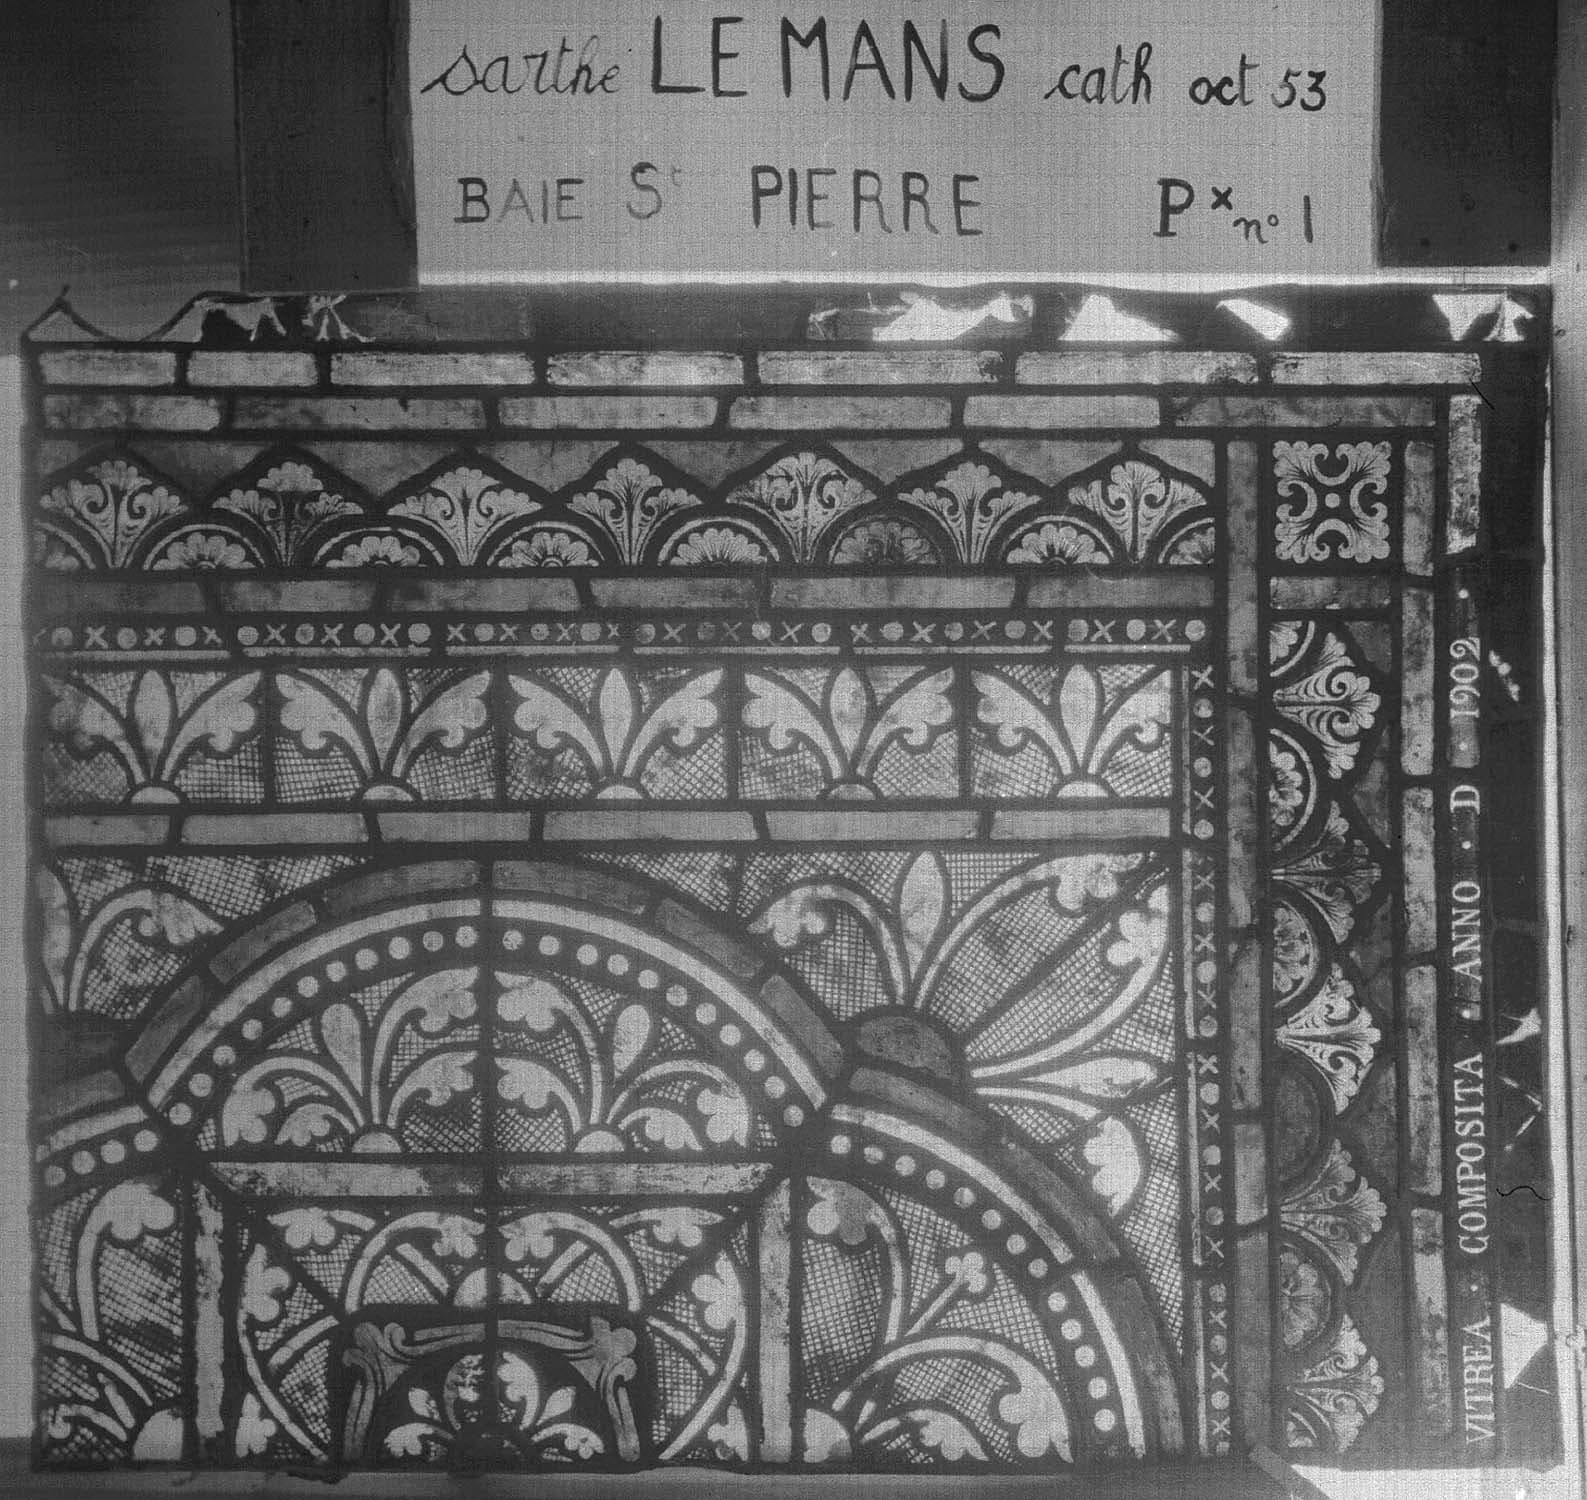 sarthe LE MANS cath oct 53
BAIE St PIERRE Px no 1
VITREA · COMPOSITA · ANNO · D · 1902 ·